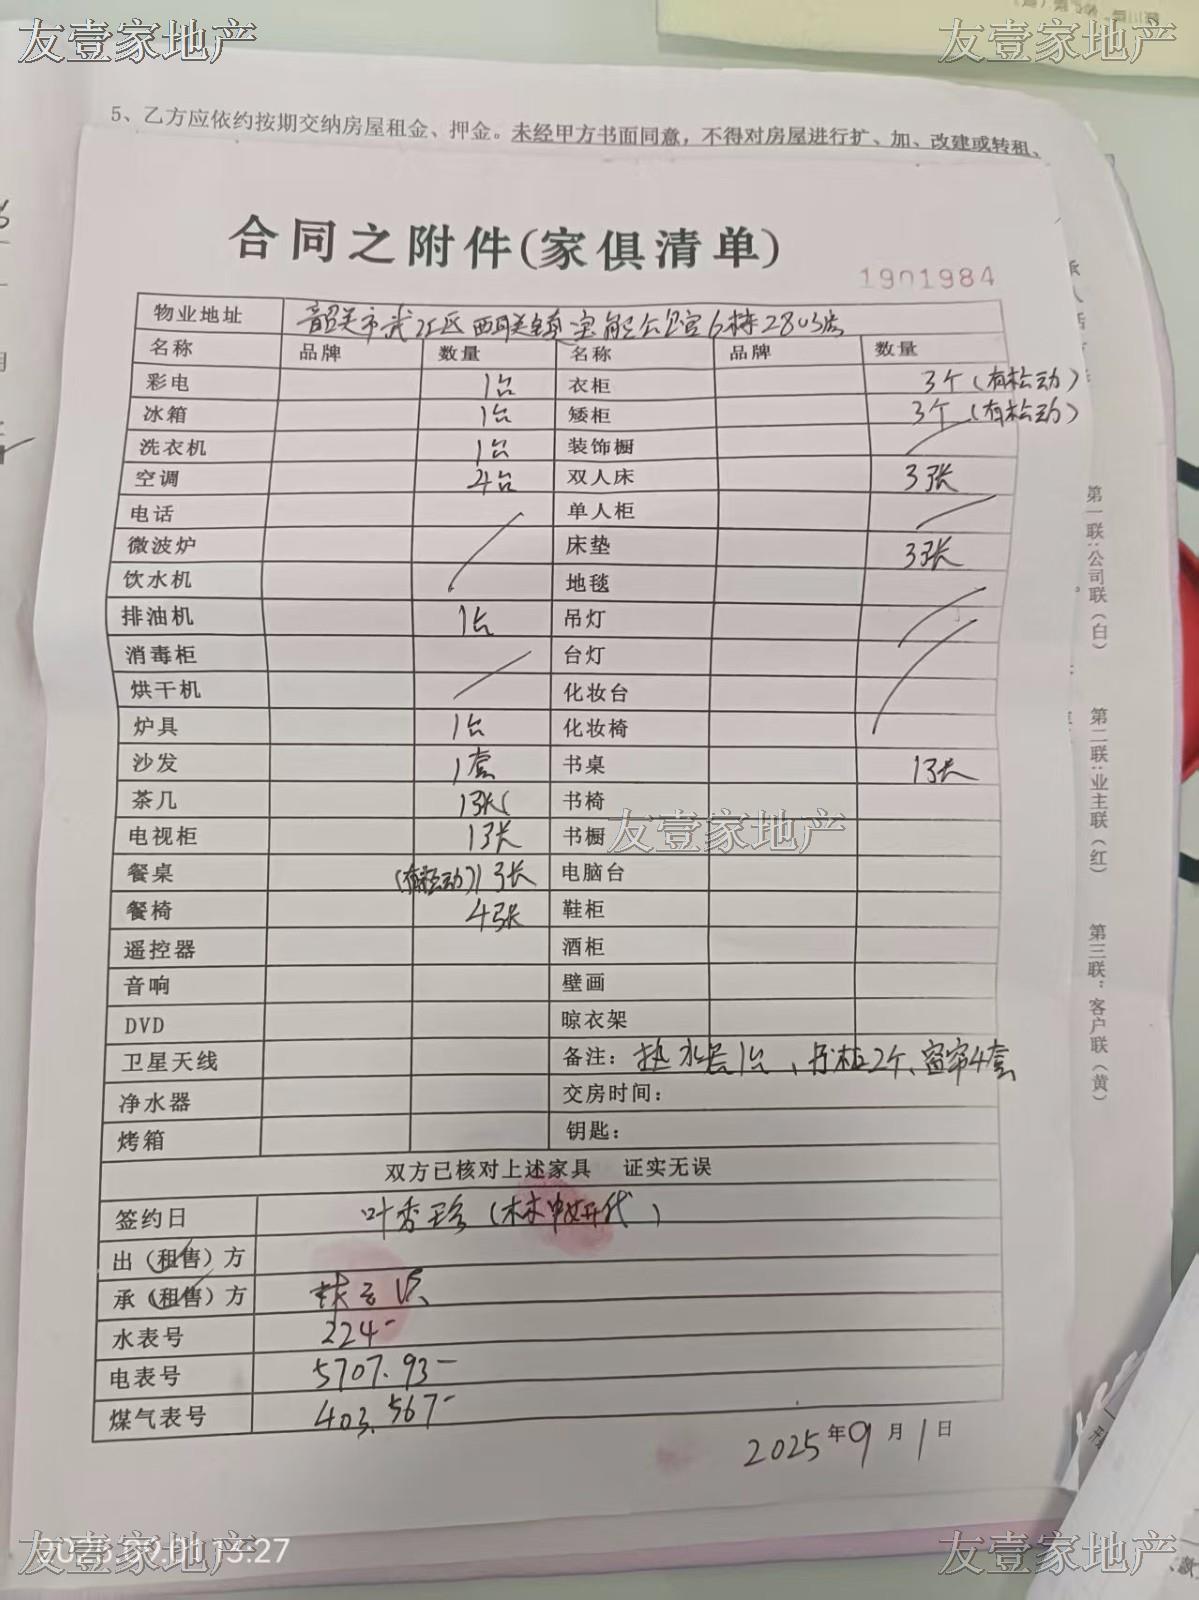 友壹家地产 友壹家地产
5、乙方应依约按期交纳房屋租金、押金。未经甲方书面同意，不得对房屋进行扩、加、改建或转租、
合同之附件(家俱清单)
1901984
物业地址 韶关市武江区西联镇宝能公馆6栋2803房
名称 品牌 数量 名称 品牌 数量
彩电 1台 衣柜 3个(有松动)
冰箱 1台 矮柜 3个(有松动)
洗衣机 1台 装饰橱
空调 4台 双人床 3张
电话 单人柜
微波炉 床垫 3张
饮水机 地毯
排油机 1台 吊灯
消毒柜 台灯
烘干机 化妆台
炉具 1台 化妆椅
沙发 1套 书桌 1张
茶几 1张 书椅
电视柜 1张 书橱
友壹家地产
餐桌 (有松动)1张 电脑台
餐椅 4张 鞋柜
遥控器 酒柜
音响 壁画
DVD 晾衣架
卫星天线 备注：热水器1台、 2个、窗帘4套
净水器 交房时间：
烤箱 钥匙：
双方已核对上述家具 证实无误
签约日 叶香珍(林 代)
出（租售）方
承（租售）方
水表号 224-
电表号 5707.93-
煤气表号 403.567-
2025年9月1日
第一联：公司联（白）
第二联：业主联（红）
第三联：客户联（黄）
友壹家地产 友壹家地产